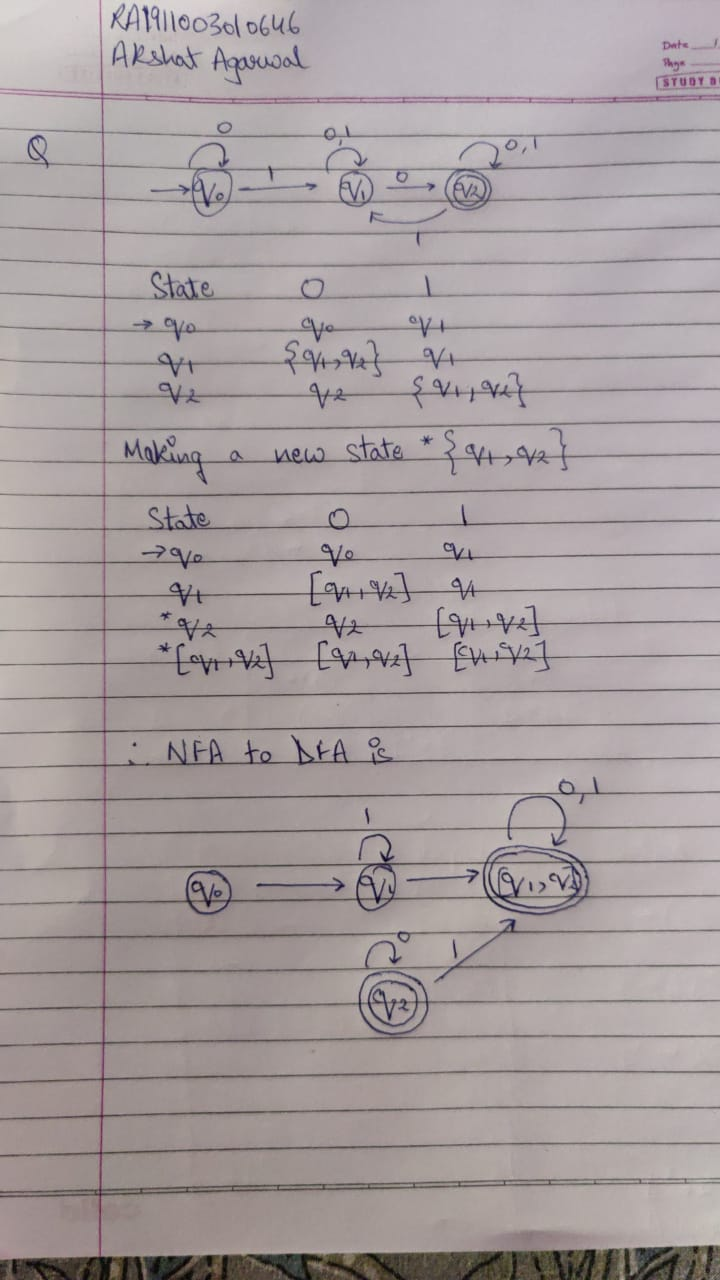 RA1911003010646
Akshat Agarwal
Date 1
Page
STUDY B
Q
0 0,1 0,1
→ q0 1 → q1 0 → q2
1
State 0 1
→ q0 q0 q1
q1 {q1, q2} q1
q2 q2 {q1, q2}
Making a new state * {q1, q2}
State 0 1
→ q0 q0 q1
q1 [q1, q2] q1
*q2 q2 [q1, q2]
*[q1, q2] [q1, q2] [q1, q2]
∴ NFA to DFA is
1 0,1
q0 → q1 → [q1, q2]
0 1
q2